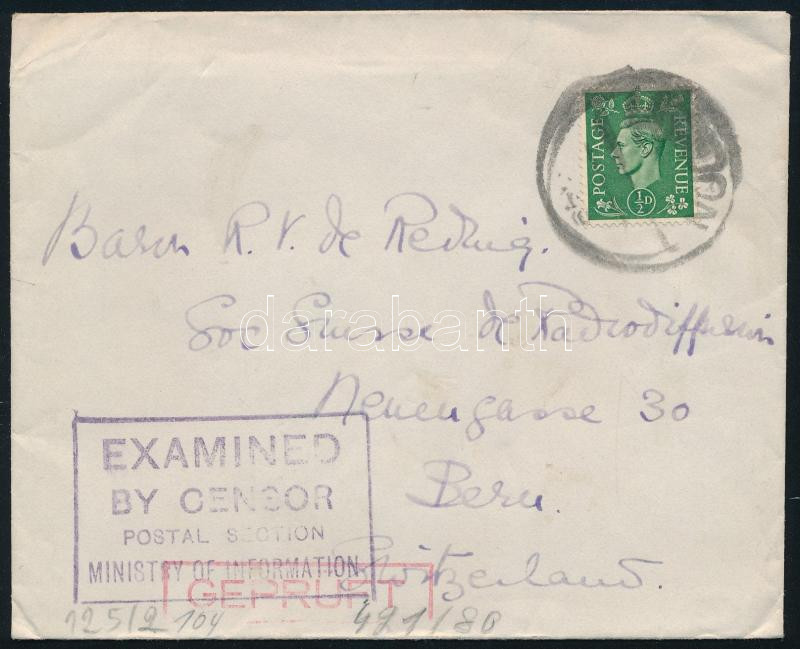 POSTAGE REVENUE
½D
Baron R. V. de Reding.
Soc Suisse de Radiodiffusion
Neuengasse 30
Bern.
Switzerland.
darabanth
EXAMINED
BY CENSOR
POSTAL SECTION
MINISTRY OF INFORMATION
GEPRÜFT
125/2 104 421/80